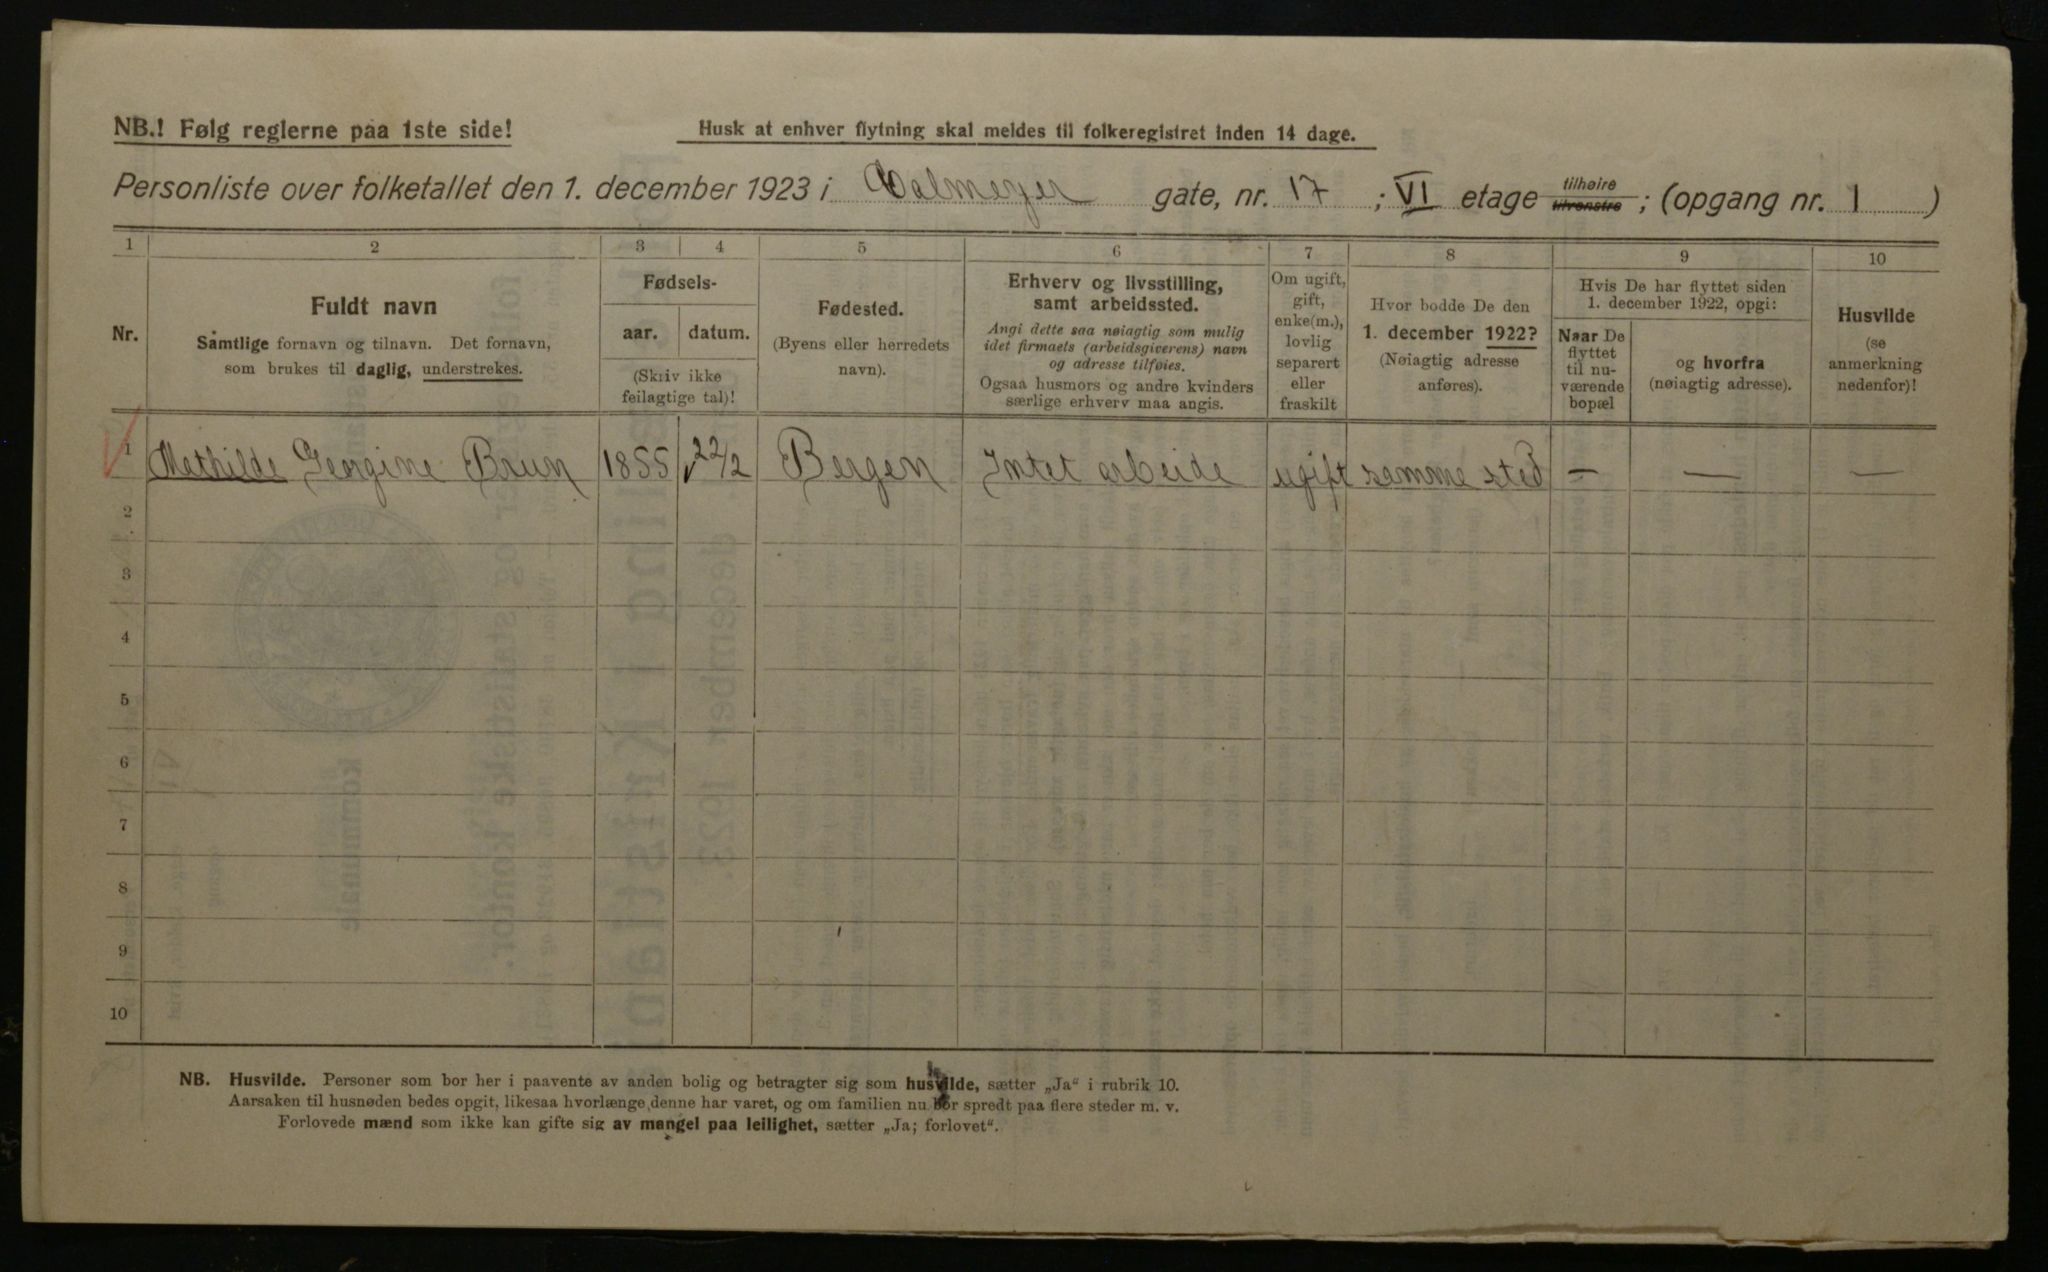 NB.! Følg reglerne paa 1ste side!
Husk at enhver flytning skal meldes til folkeregistret inden 14 dage.
Personliste over folketallet den 1. december 1923 i Calmeyer gate, nr. 17 ; VI etage tilhøire tilvenstre ; (opgang nr. 1 )
1 2 3 4 5 6 7 8 9 10
Nr.
Fuldt navn
Samtlige fornavn og tilnavn. Det fornavn,
som brukes til daglig, understrekes.
Fødsels-
aar. datum.
(Skriv ikke
feilagtige tal)!
Fødested.
(Byens eller herredets
navn).
Erhverv og livsstilling,
samt arbeidssted.
Angi dette saa nøiagtig som mulig
idet firmaets (arbeidsgiverens) navn
og adresse tilføies.
Ogsaa husmors og andre kvinders
særlige erhverv maa angis.
Om ugift,
gift,
enke(m.),
lovlig
separert
eller
fraskilt
Hvor bodde De den
1. december 1922?
(Nøiagtig adresse
anføres).
Hvis De har flyttet siden
1. december 1922, opgi:
Naar De
flyttet
til nu-
værende
bopæl
og hvorfra
(nøiagtig adresse).
Husvilde
(se
anmerkning
nedenfor)!
1 Mathilde Georgine Brun 1855 22/2 Bergen Intet arbeide ugift samme sted — — —
2
3
4
5
6
7
8
9
10
NB. Husvilde. Personer som bor her i paavente av anden bolig og betragter sig som husvilde, sætter „Ja" i rubrik 10.
Aarsaken til husnøden bedes opgit, likesaa hvorlænge denne har varet, og om familien nu bor spredt paa flere steder m. v.
Forlovede mænd som ikke kan gifte sig av mangel paa leilighet, sætter „Ja; forlovet".